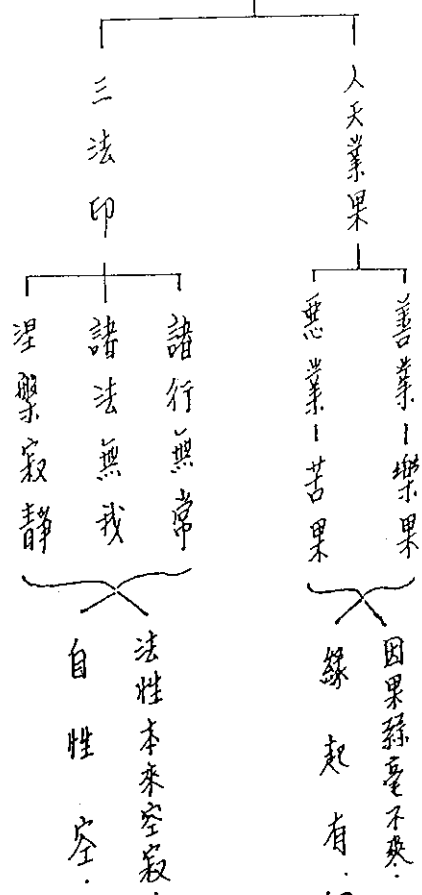 人天業果
善業－樂果
惡業－苦果
因果絲毫不爽．
緣起有．
三法印
諸行無常
諸法無我
涅槃寂靜
法性本來空寂．
自性空．